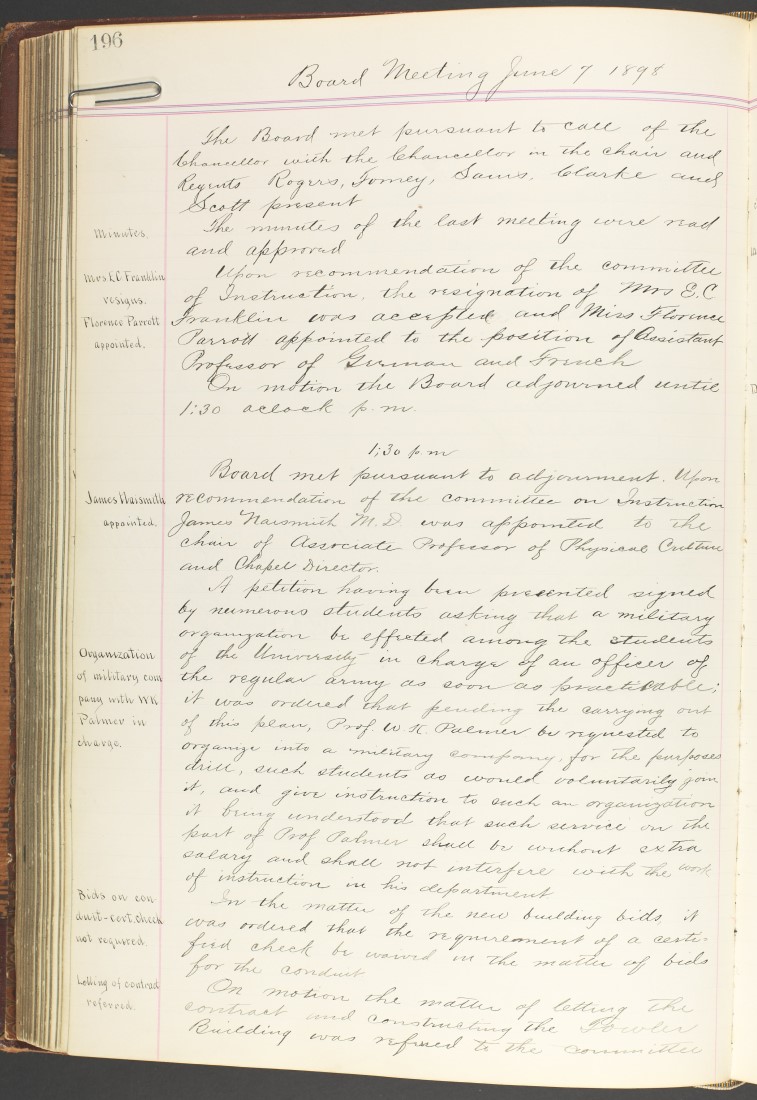 196
Board Meeting June 7 1898
The Board met pursuant to call of the
Chancellor with the Chancellor in the chair and
Regents Rogers, Forney, Sams, Clarke and
Scott present
Minutes.
The minutes of the last meeting were read
and approved
Mrs E.C Franklin
resigns.
Florence Parrott
appointed.
Upon recommendation of the committee
of Instruction, the resignation of Mrs E.C
Franklin was accepted and Miss Florence
Parrott appointed to the position of Assistant
Professor of German and French
On motion the Board adjourned until
1:30 oclock p.m.
1:30 p m
James Naismith
appointed.
Board met pursuant to adjournment. Upon
recommendation of the committee on Instruction
James Naismith M.D. was appointed to the
chair of Associate Professor of Physical Culture
and Chapel Director.
A petition having been presented signed
by numerous students asking that a military
organization be effected among the students
Organization
of military com
pany with WK
Palmer in
charge.
of the University in charge of an officer of
the regular army as soon as practicable;
it was ordered that pending the carrying out
of this plan, Prof. W. K. Palmer be requested to
organize into a military company, for the purposes
drill, such students as would voluntarily join
it, and give instruction to such an organization
it being understood that such service on the
part of Prof Palmer shall be without extra
salary and shall not interfere with the work
of instruction in his department
Bids on con-
duit-cert. check
not required
In the matter of the new building bids, it
was ordered that the requirement of a certi-
fied check be waived in the matter of bids
for the conduit
Letting of contract
referred.
On motion the matter of letting the
contract and constructing the Fowler
Building was refered to the committee